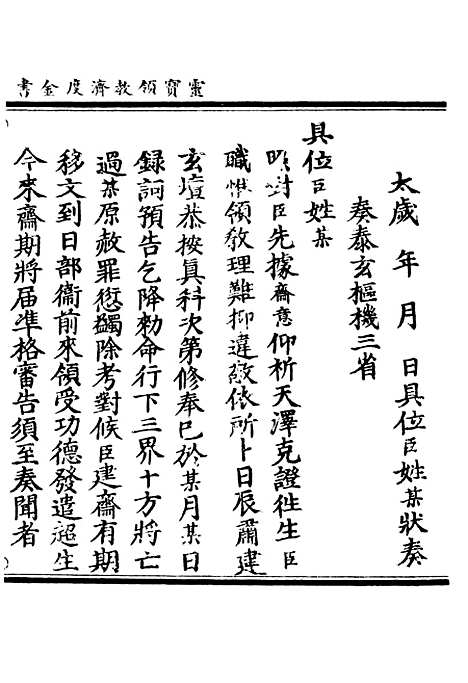 靈寶領教濟度金書
太歲　年　月　日具位臣姓某狀奏
奏泰玄樞機三省
具位臣姓某
明對臣先據齋意仰祈天澤克證徃生臣
職惟領教理難抑違敬依所卜日辰肅建
玄壇恭按真科次第修奉已於某月某日
録詞預告乞降勑命行下三界十方將亡
過某原赦罪愆蠲除考對候臣建齋有期
移文到日部衛前來領受功德發遣超生
今來齋期將届凖格審告須至奏聞者